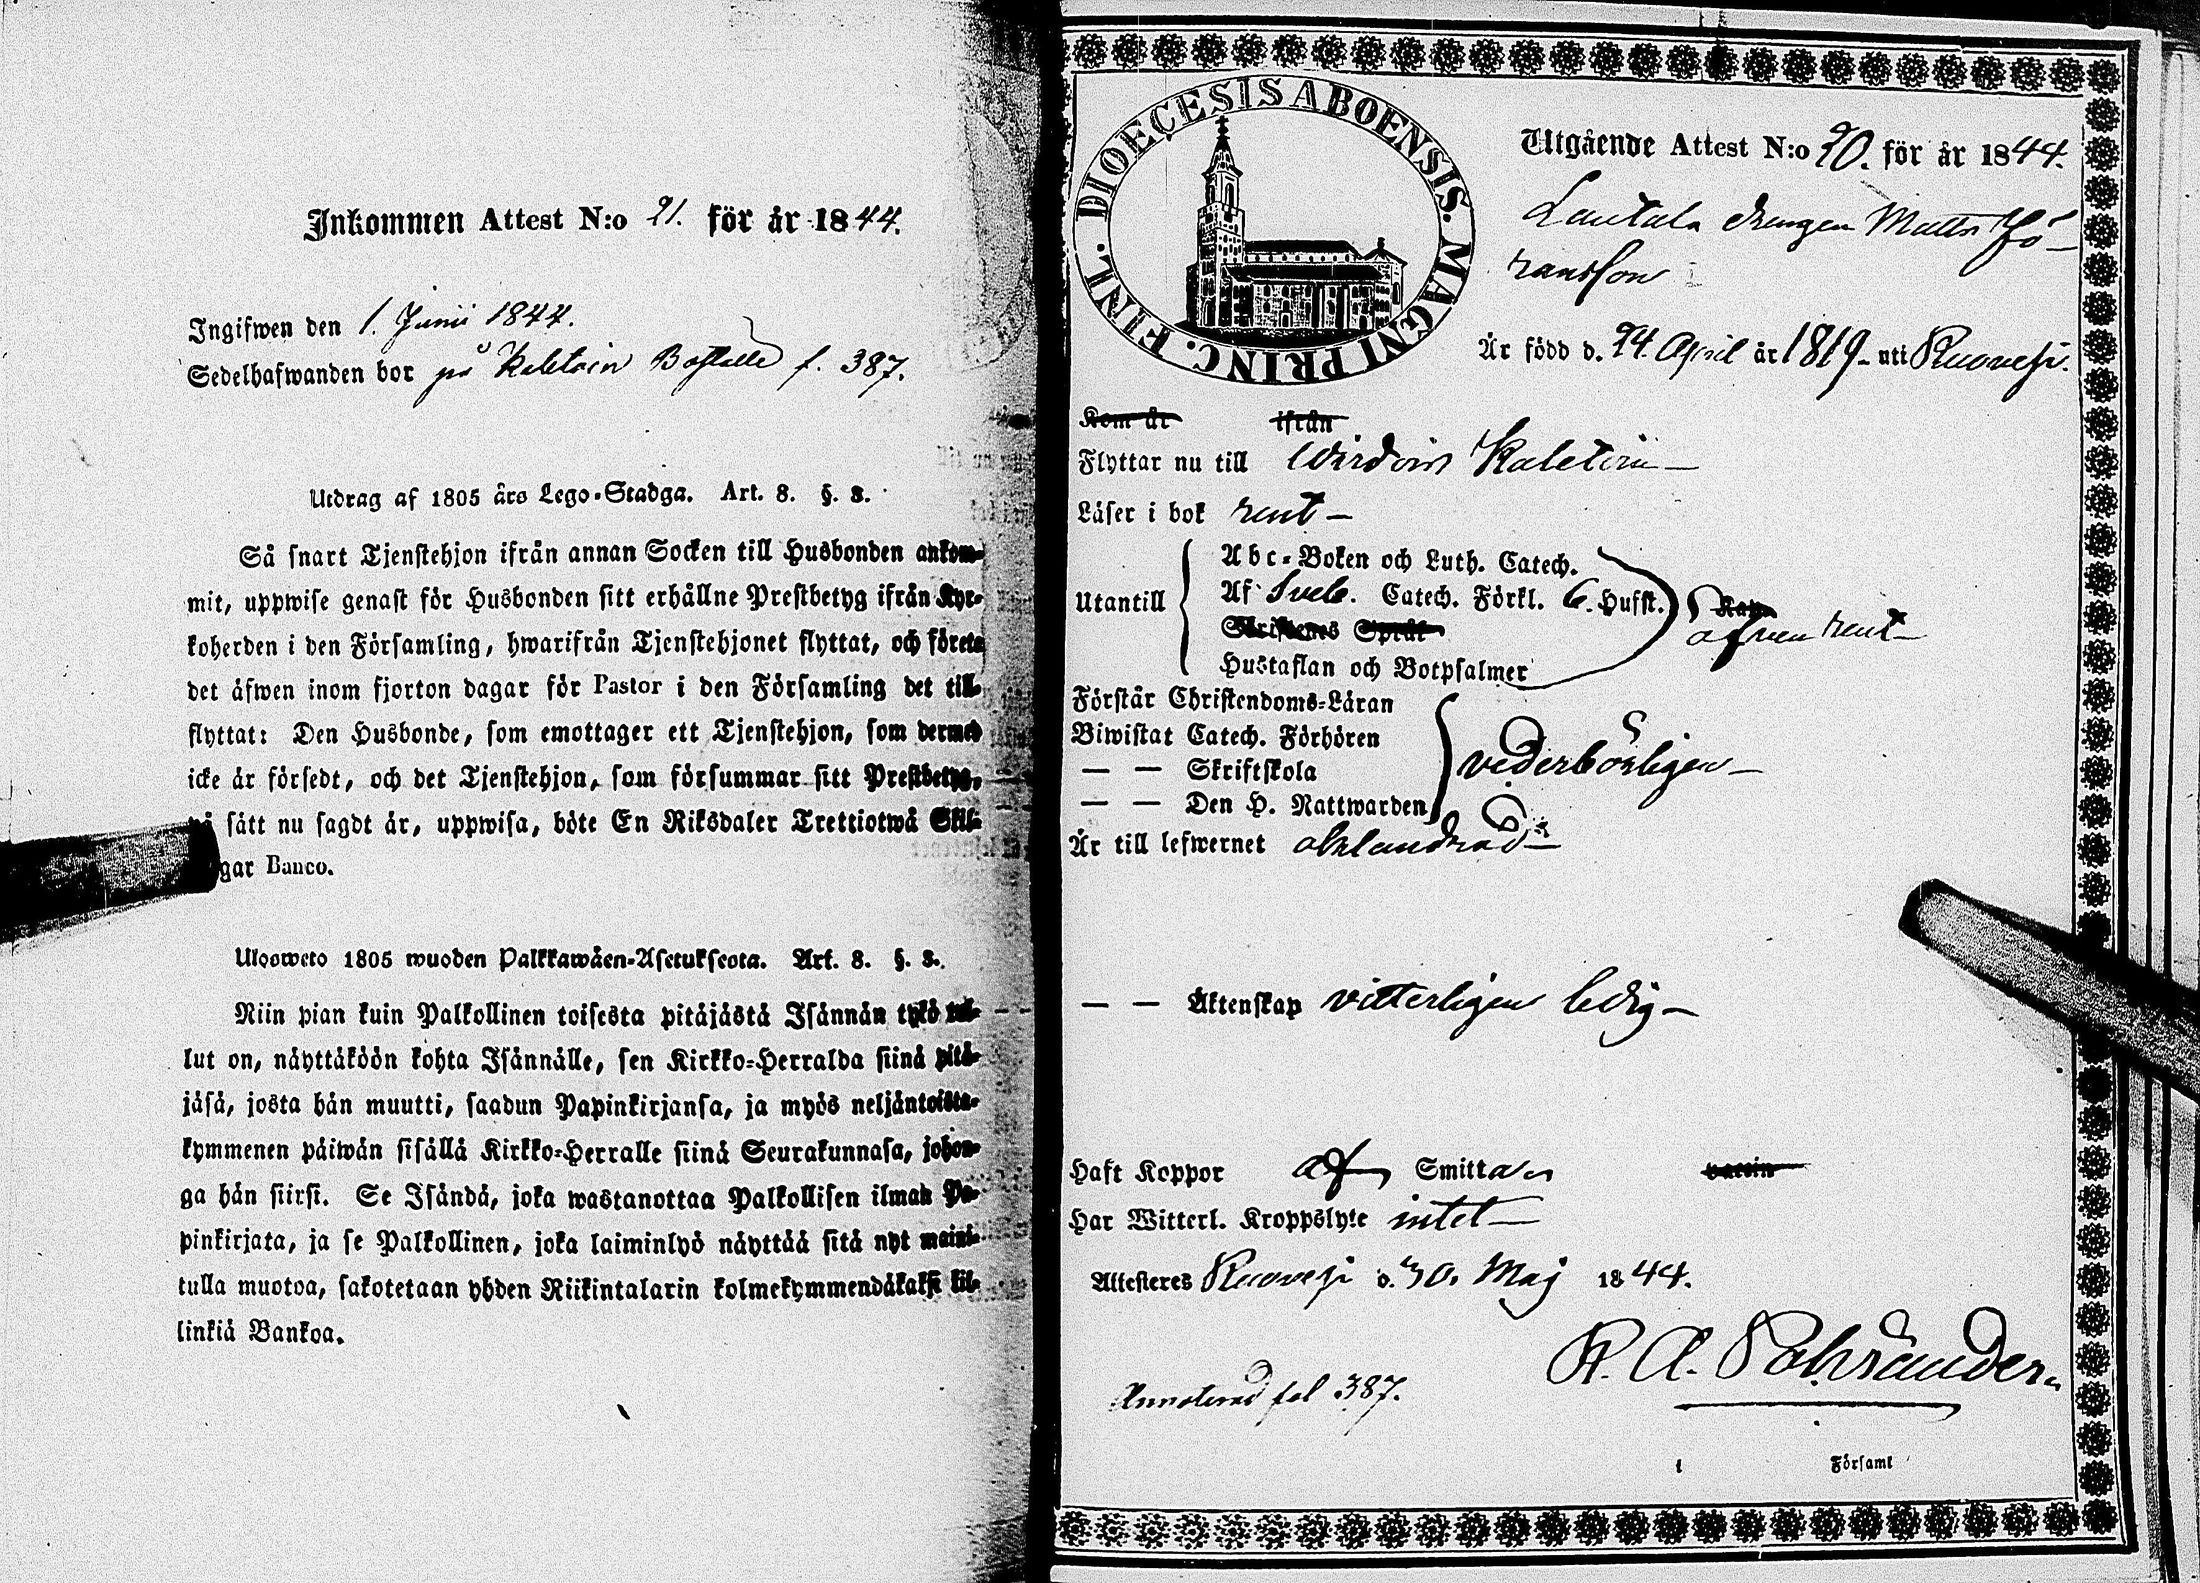 Inkommen Attest N:o 21. för år 1844.
Ingifwen den 1. Junii 1844.
Sedelhafwanden bor på Kaletoin Boställe f. 387.
Utdrag af 1805 års Lego-Stadga. Art. 8. §. 8.
Så snart Tjenstehjon ifrån annan Socken till Husbonden ankom-
mit, uppwise genast för Husbonden sitt erhållne Prestbetyg ifrån Kyr-
koherden i den Församling, hwarifrån Tjenstehjonet flyttat, ochförete
det äfwen inom fjorton dagar för Pastor i den Församling det till-
flyttat: Den Husbonde, som emottager ett Tjenstehjon, som dermed
icke är försedt, och det Tjenstehjon, som försummar sitt Prestbetyg,
sätt nu sagdt är, uppwisa, böte En Riksdaler Trettiotwå Skil-
gar Banco.
Ulosweto 1805 wuoden Palkkawäen-Asetuksesta. Art. 8. §. 8.
Niin pian kuin Palkollinen toisesta pitäjästä Isännän tykö tul-
lut on, näyttäköön kohta Isännälle, sen Kirkko-Herralda siinä pitä-
jäsä, josta hän muutti, saadun Papinkirjansa, ja myös neljäntoista-
kymmenen päiwän sisällä Kirkko-Herralle siinä Seurakunnasa, johon-
ga hän siirsi. Se Isändä, joka wastanottaa Palkollisen ilman Pa-
pinkirjata, ja se Palkollinen, joka laiminlyö näyttää sitä nyt maini-
tulla muotoa, sakotetaan yhden Riikintalarin kolmekymmendäkaksi kil-
linkiä Bankoa.
DIOECESIS ABOENSIS. MAGNI PRINC. FINL.
Utgående Attest N:o 20. för år 1844.
Lautala drengen Matts Jö-
ransson
Är född d. 24. April år 1819 uti Ruovesi.
Kom år ifrån
Flyttar nu till Wirdois Kaletoin
Läser i bok rent
Utantill
Abc-Boken och Luth. Catech.
Af Sveb. Catech. Förkl. 6. Hufst.
Skriftenes Språk
Hustaflan och Botpsalmer
äfven rent
Förstår Christendoms-Läran
Biwistat Catech. Förhören
— — Skriftskola
— — Den H. Nattwarden
vederbörligen
Är till lefwernet oklandrad
— — Äktenskap vitterligen ledig
Haft Koppor af Smittan vaccin
Har Witterl. Kroppslyte intet
Attesteres Ruovesi d. 30. Maj 1844.
Annoterad fol 387.
Församl